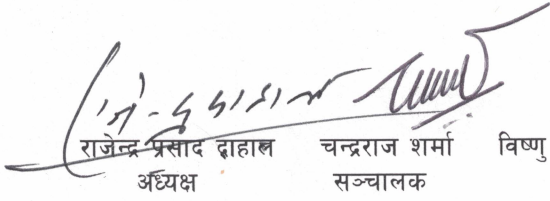 राजेन्द्र प्रसाद दाहाल चन्द्रराज शर्मा विष्णु
अध्यक्ष सञ्चालक